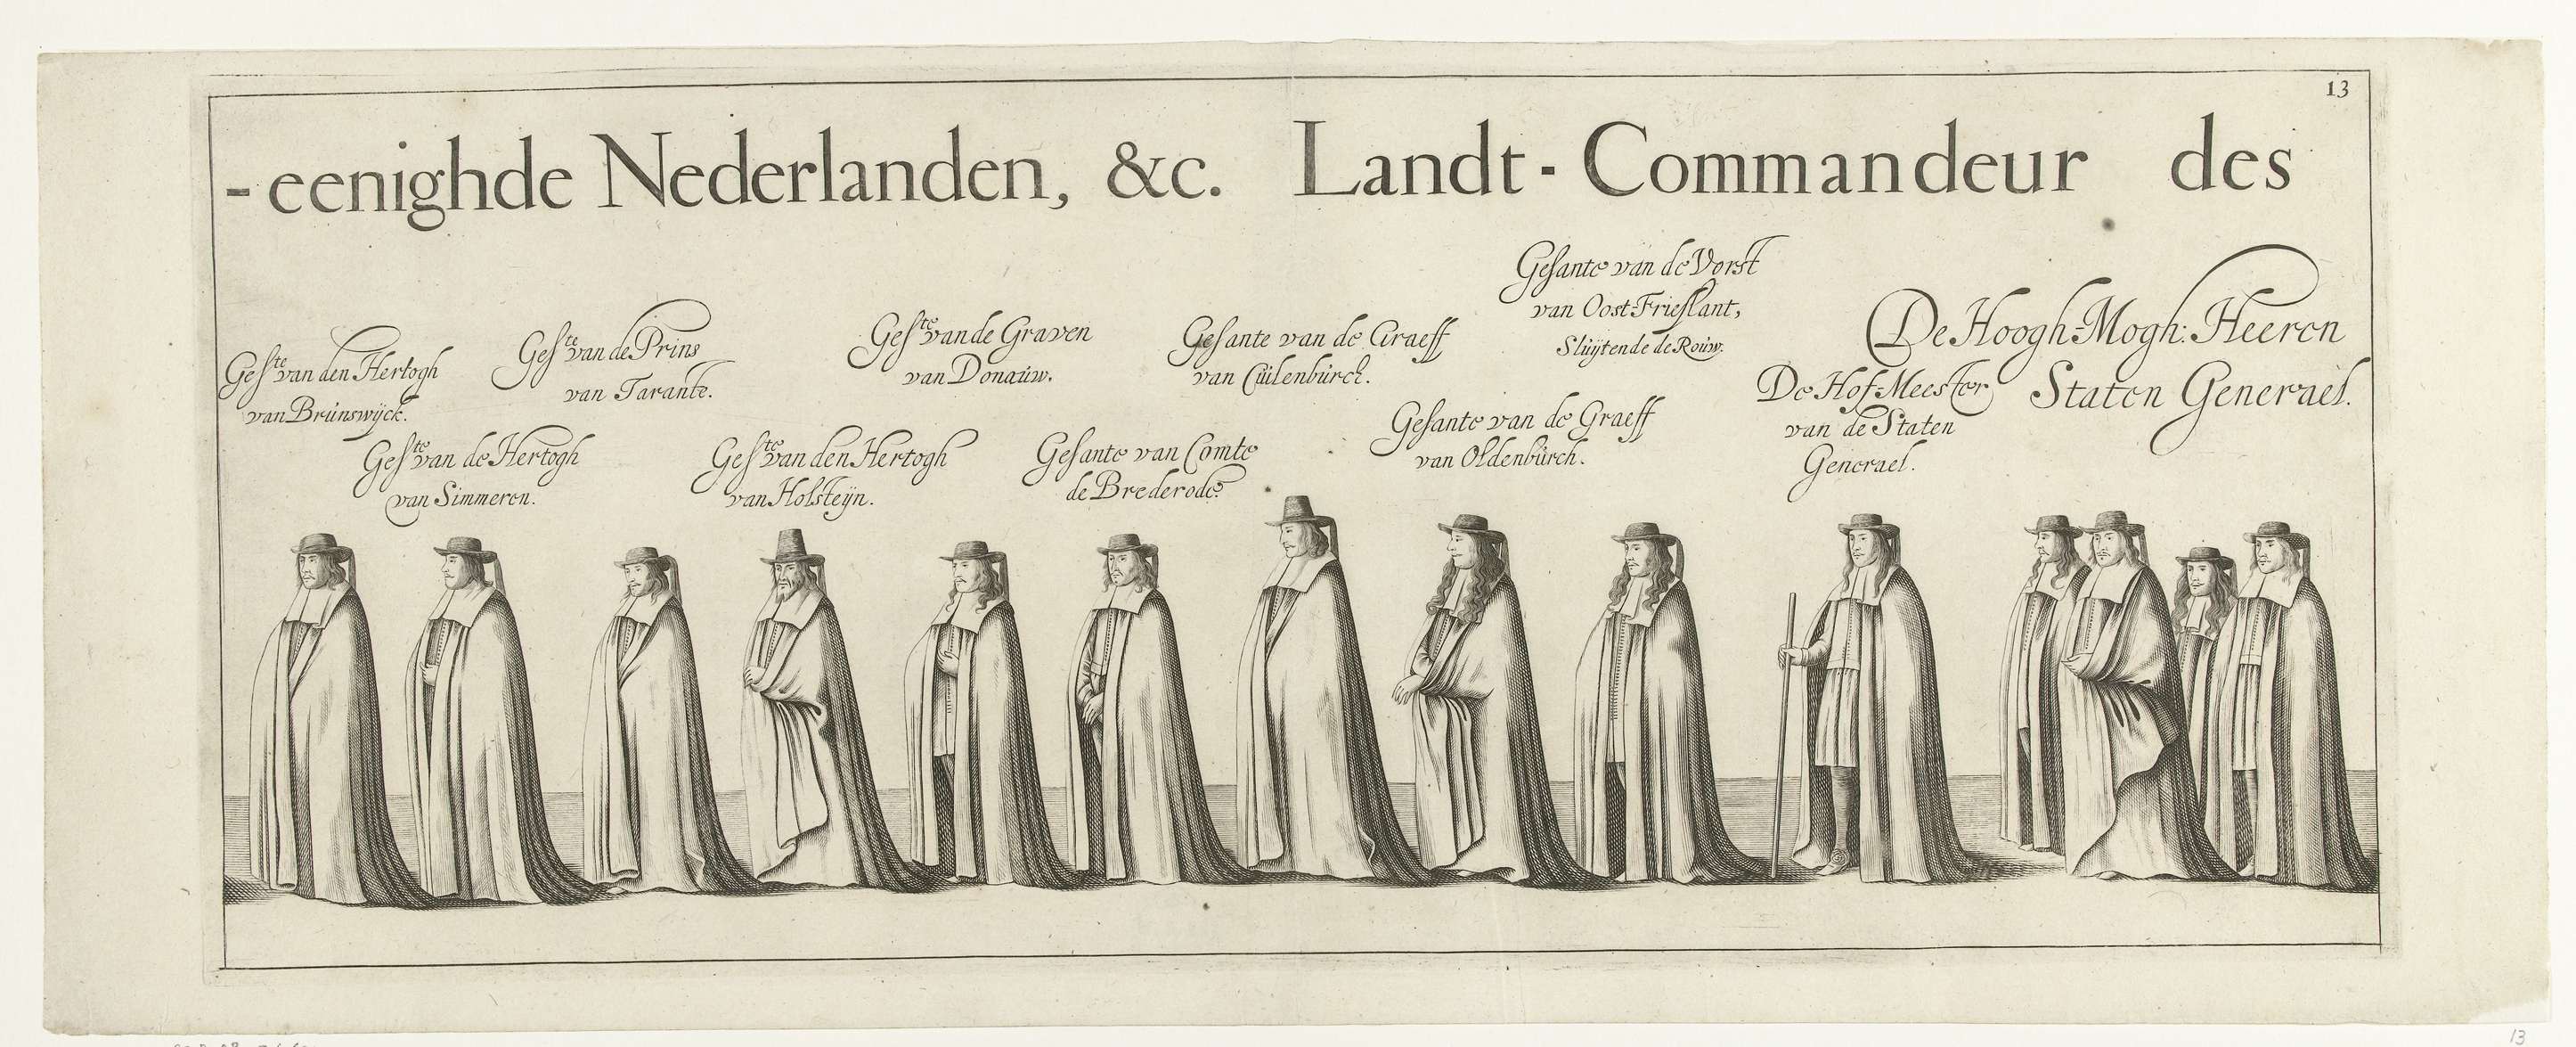 13
-eenighde Nederlanden, &c. Landt-Commandeur des
Geste van den Hertogh
van Brunswijck.
Geste van de Hertogh
van Simmeren.
Geste van de Prins
van Tarante.
Geste van den Hertogh
van Holsteijn.
Geste van de Graven
van Donauw.
Gesante van Comte
de Brederode
Gesante van de Graeff
van Cuilenburch.
Gesante van de Graeff
van Oldenburch.
Gesante van de Vorst
van Oost-Frieslant,
Sluijtende de Rouw.
De Hof-Meester
van de Staten
Generael.
De Hoogh-Mogh: Heeren
Staten Generael.
13